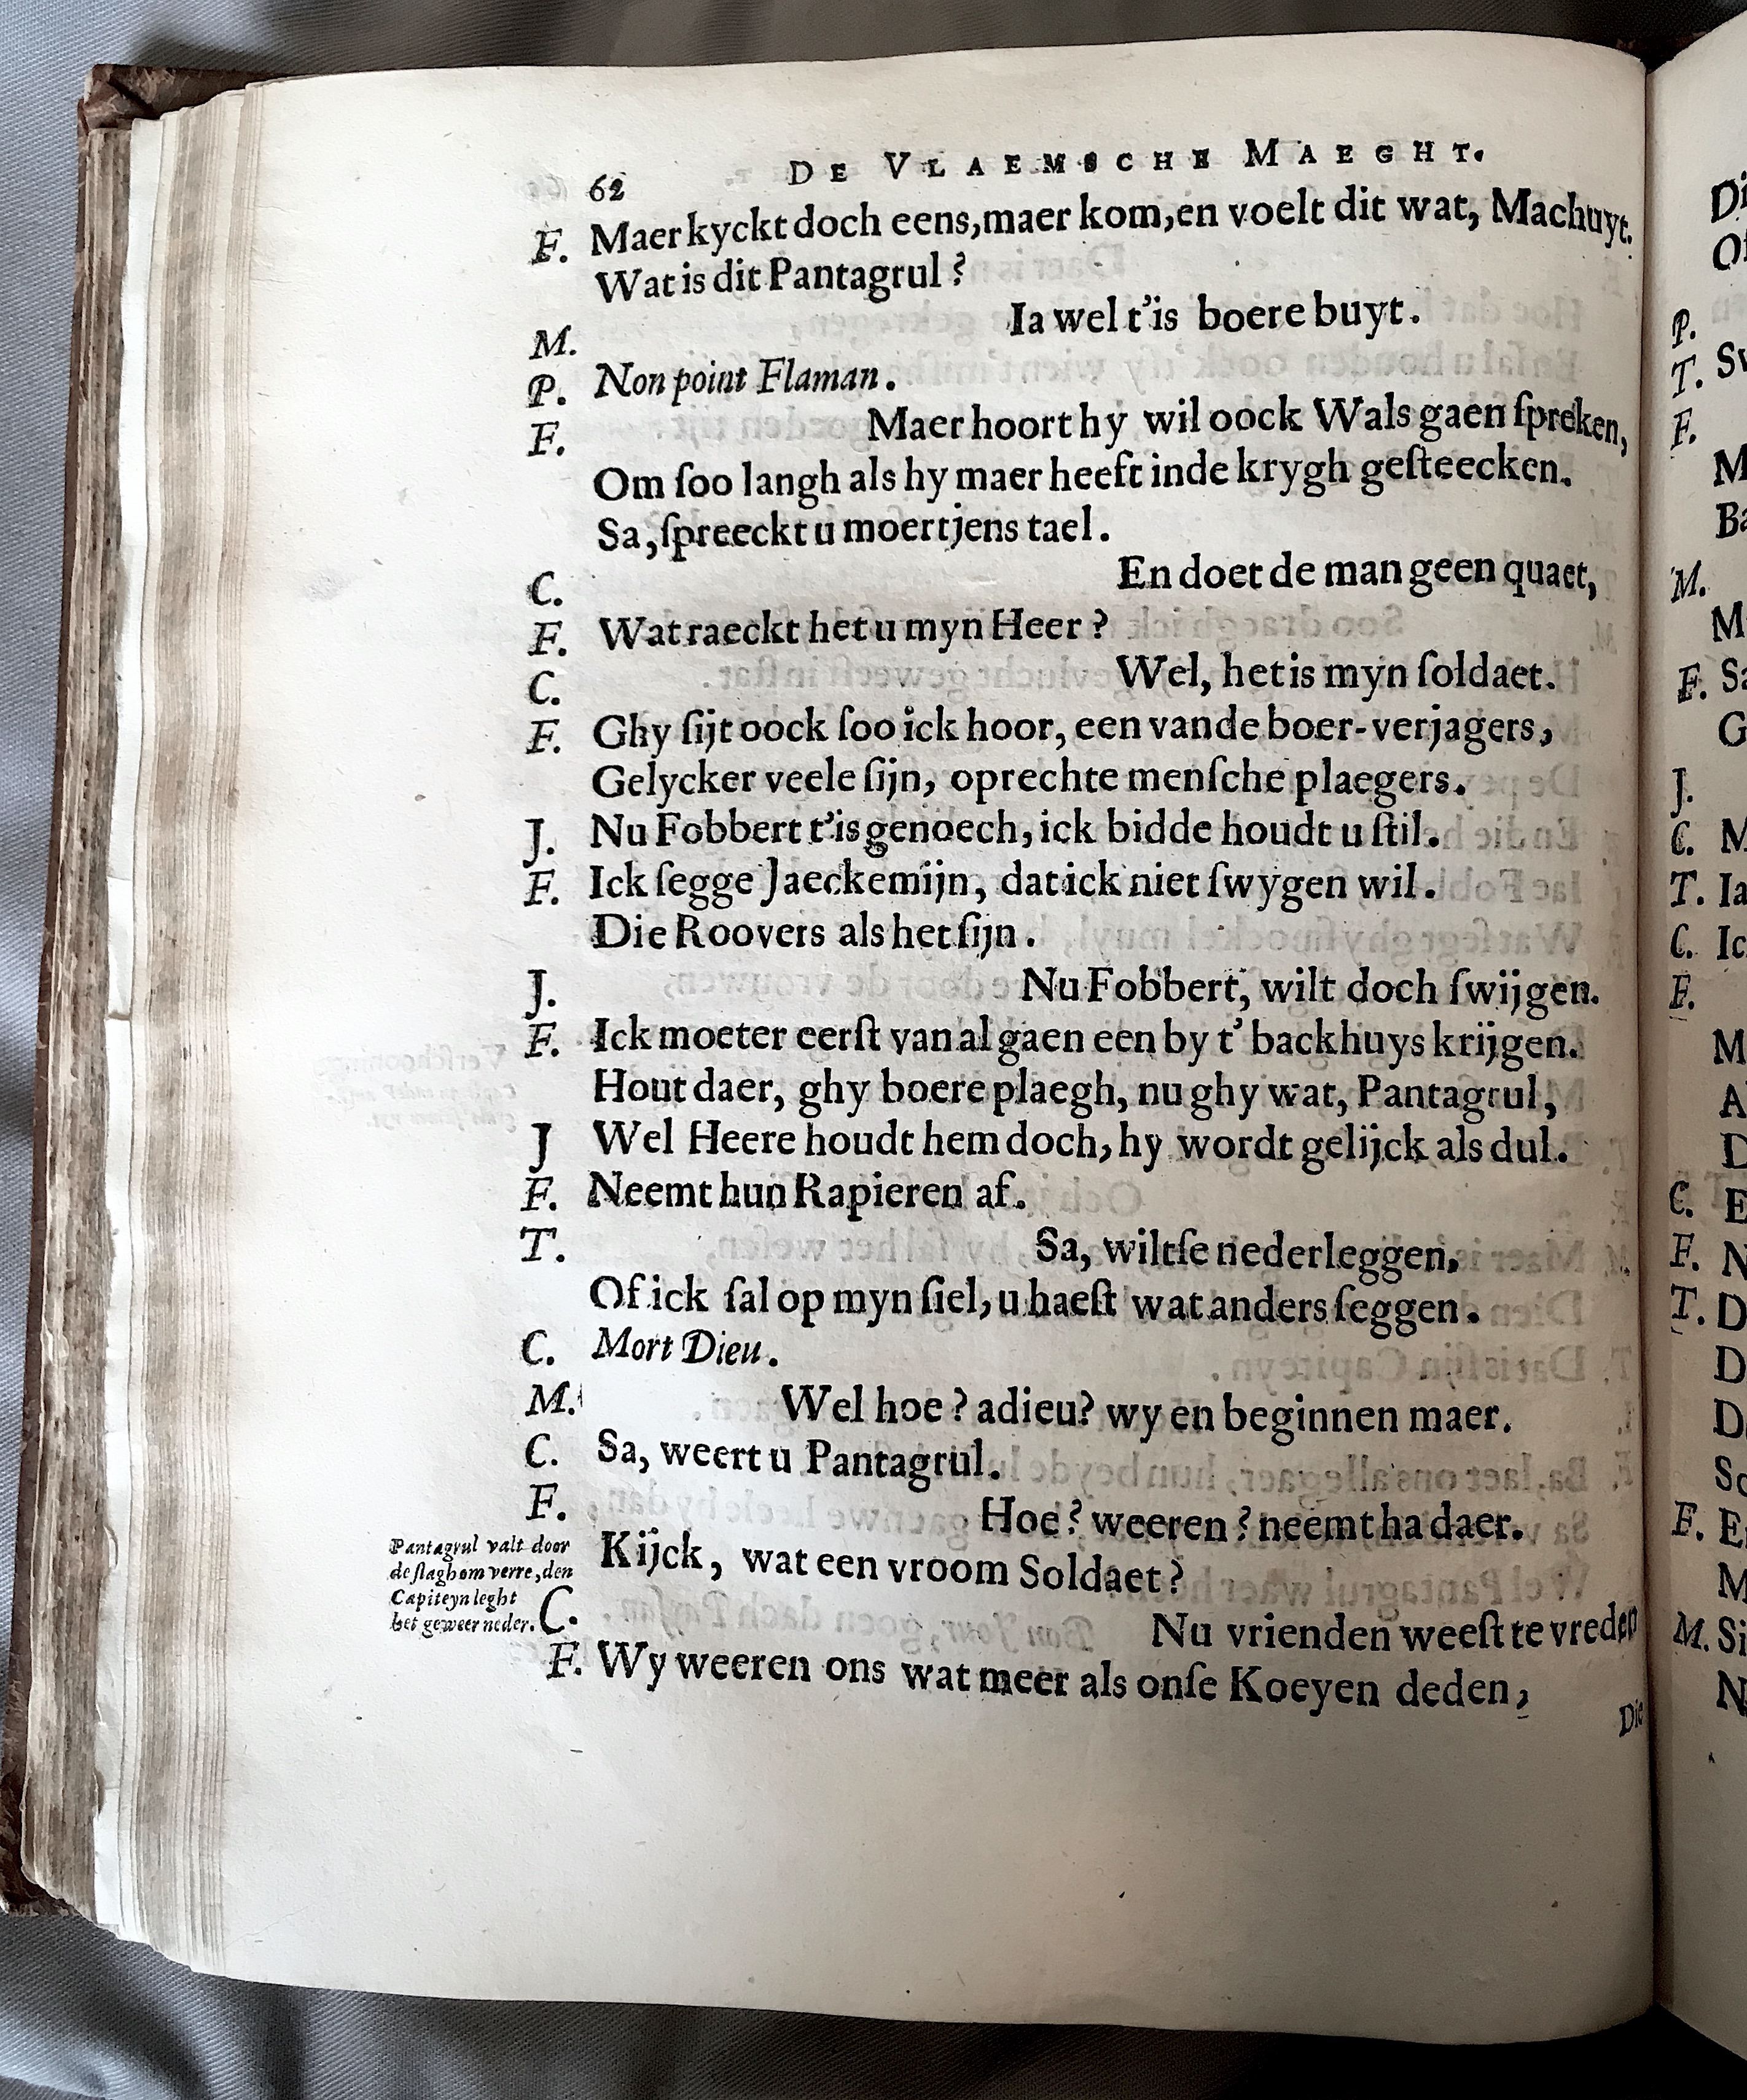 62 DE VLAEMSCHE MAEGHT.
F. Maer kyckt doch eens, maer kom, en voelt dit wat, Machuyt.
Wat is dit Pantagrul?
M. Ia wel t'is boere buyt.
P. Non point Flaman.
F. Maer hoort hy wil oock Wals gaen ſpreken,
Om ſoo langh als hy maer heeft inde krygh geſteecken.
Sa, ſpreeckt u moertjens tael.
C. En doet de man geen quaet,
F. Wat raeckt het u myn Heer?
C. Wel, het is myn ſoldaet.
F. Ghy ſijt oock ſoo ick hoor, een vande boer-verjagers,
Gelycker veele ſijn, oprechte menſche plaegers.
J. Nu Fobbert t'is genoech, ick bidde houdt u ſtil.
F. Ick ſegge Jaeckemijn, dat ick niet ſwygen wil.
Die Roovers als het ſijn.
J. Nu Fobbert, wilt doch ſwijgen.
F. Ick moeter eerſt van al gaen een by t' backhuys krijgen.
Hout daer, ghy boere plaegh, nu ghy wat, Pantagrul,
J Wel Heere houdt hem doch, hy wordt gelijck als dul.
F. Neemt hun Rapieren af.
T. Sa, wiltſe nederleggen,
Of ick ſal op myn ſiel, u haeſt wat anders ſeggen.
C. Mort Dieu.
M. Wel hoe? adieu? wy en beginnen maer.
C. Sa, weert u Pantagrul.
F. Hoe? weeren? neemt ha daer.
Kijck, wat een vroom Soldaet?
Pantagrul valt door
de ſlagh om verre, den
Capiteyn leght
het geweer neder.
C. Nu vrienden weeſt te vreden
F. Wy weeren ons wat meer als onſe Koeyen deden,
Die
P.
T.
F.
M.
F.
J.
C.
T. Ia
C.
F.
C.
F.
T.
F.
M. Si